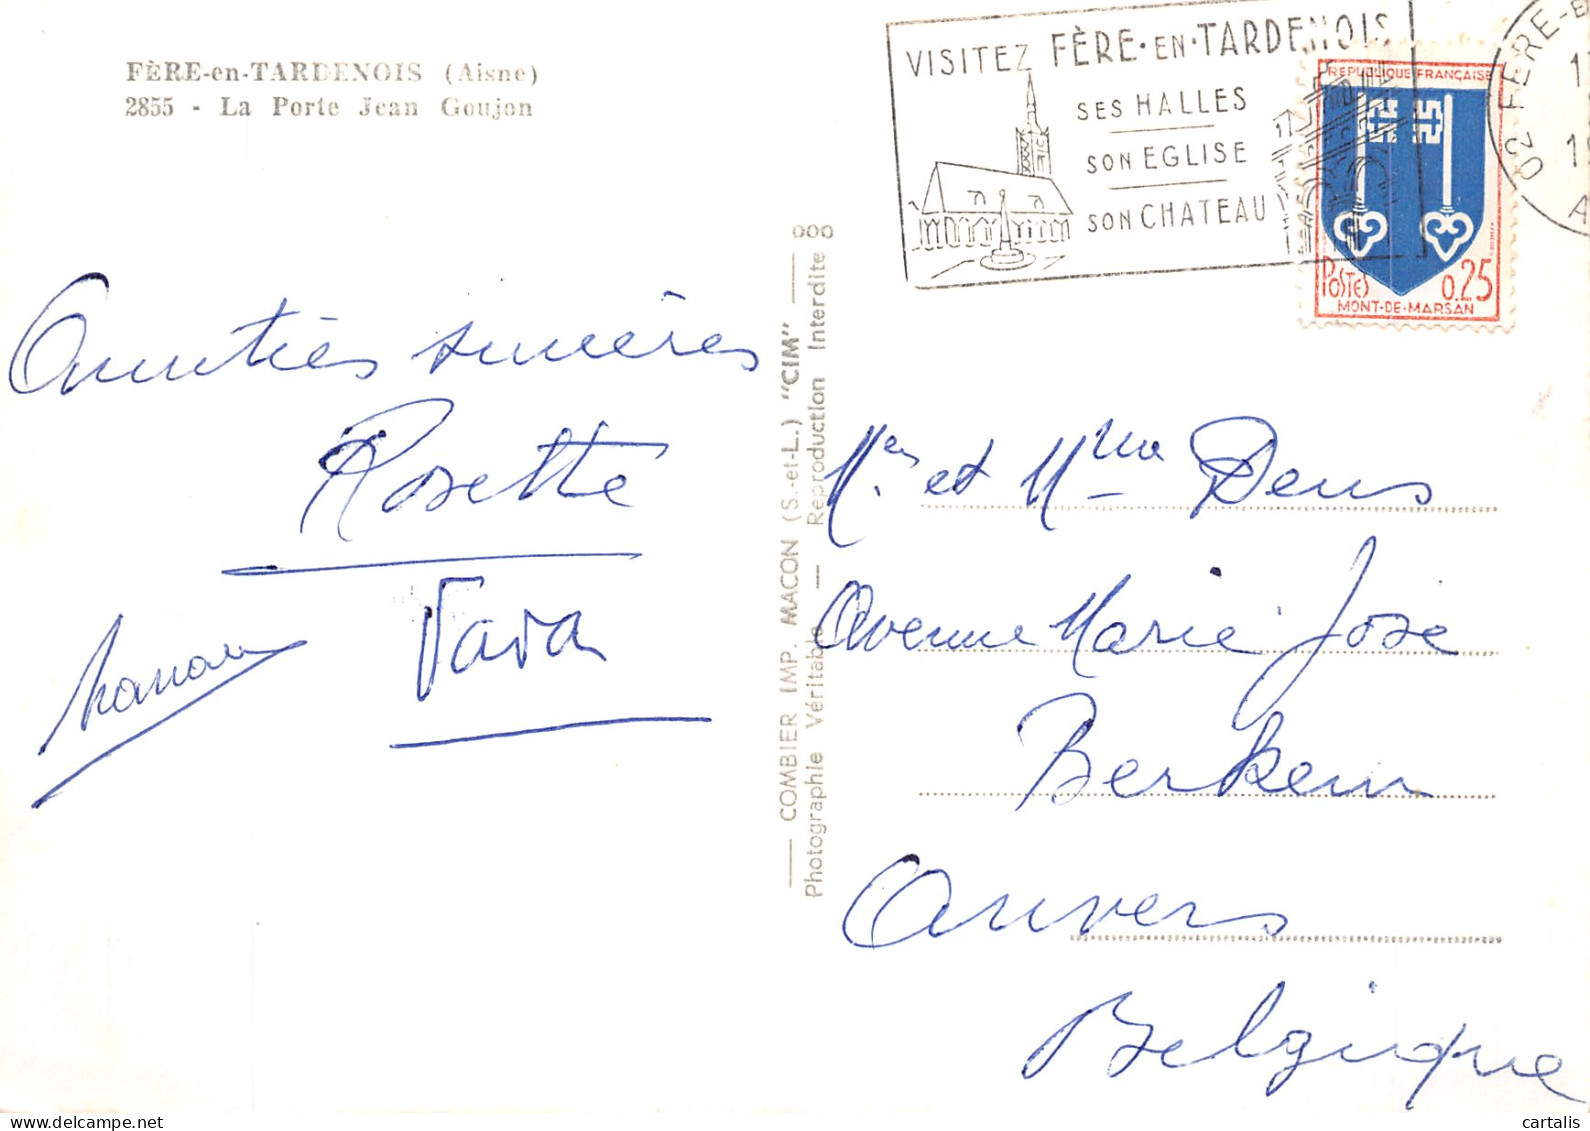 FÈRE-en-TARDENOIS (Aisne)
2855 - La Porte Jean Goujon
VISITEZ FÈRE·EN·TARDENOIS
SES HALLES
SON EGLISE
SON CHATEAU
02 FERE-E
RÉPUBLIQUE FRANÇAISE
POSTES
0,25
MONT-DE-MARSAN
000
COMBIER IMP. MACON (S.-et-L.) "CIM"
Photographie Véritable — Reproduction Interdite
Amitiés sincères
Rosette
Vava
Mr et Mme Dens
Avenue Marie José
Berkem
Anvers
Belgique
cartalis